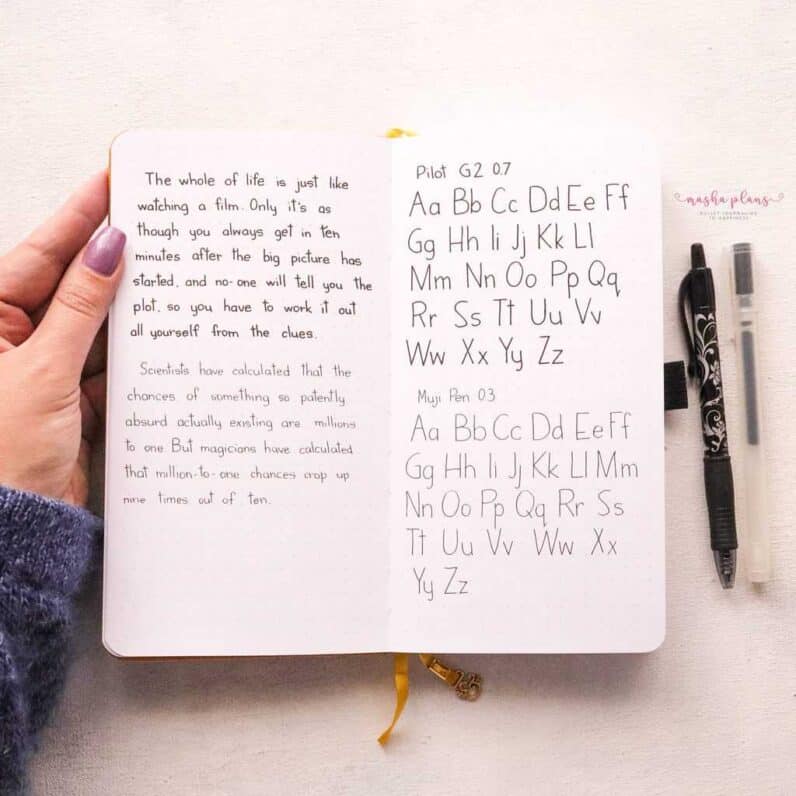 The whole of life is just like
watching a film. Only it's as
though you always get in ten
minutes after the big picture has
started, and no-one will tell you the
plot, so you have to work it out
all yourself from the clues.
Scientists have calculated that the
chances of something so patently
absurd actually existing are millions
to one But magicians have calculated
that million-to-one chances crop up
nine times out of ten.
Pilot G2 0.7
Aa Bb Cc Dd Ee Ff
Gg Hh Ii Jj Kk Ll
Mm Nn Oo Pp Qq
Rr Ss Tt Uu Vv
Ww Xx Yy Zz
Muji Pen 0.3
Aa Bb Cc Dd Ee Ff
Gg Hh Ii Jj Kk Ll Mm
Nn Oo Pp Qq Rr Ss
Tt Uu Vv Ww Xx
Yy Zz
masha plans
BULLET JOURNALING
TO HAPPINESS